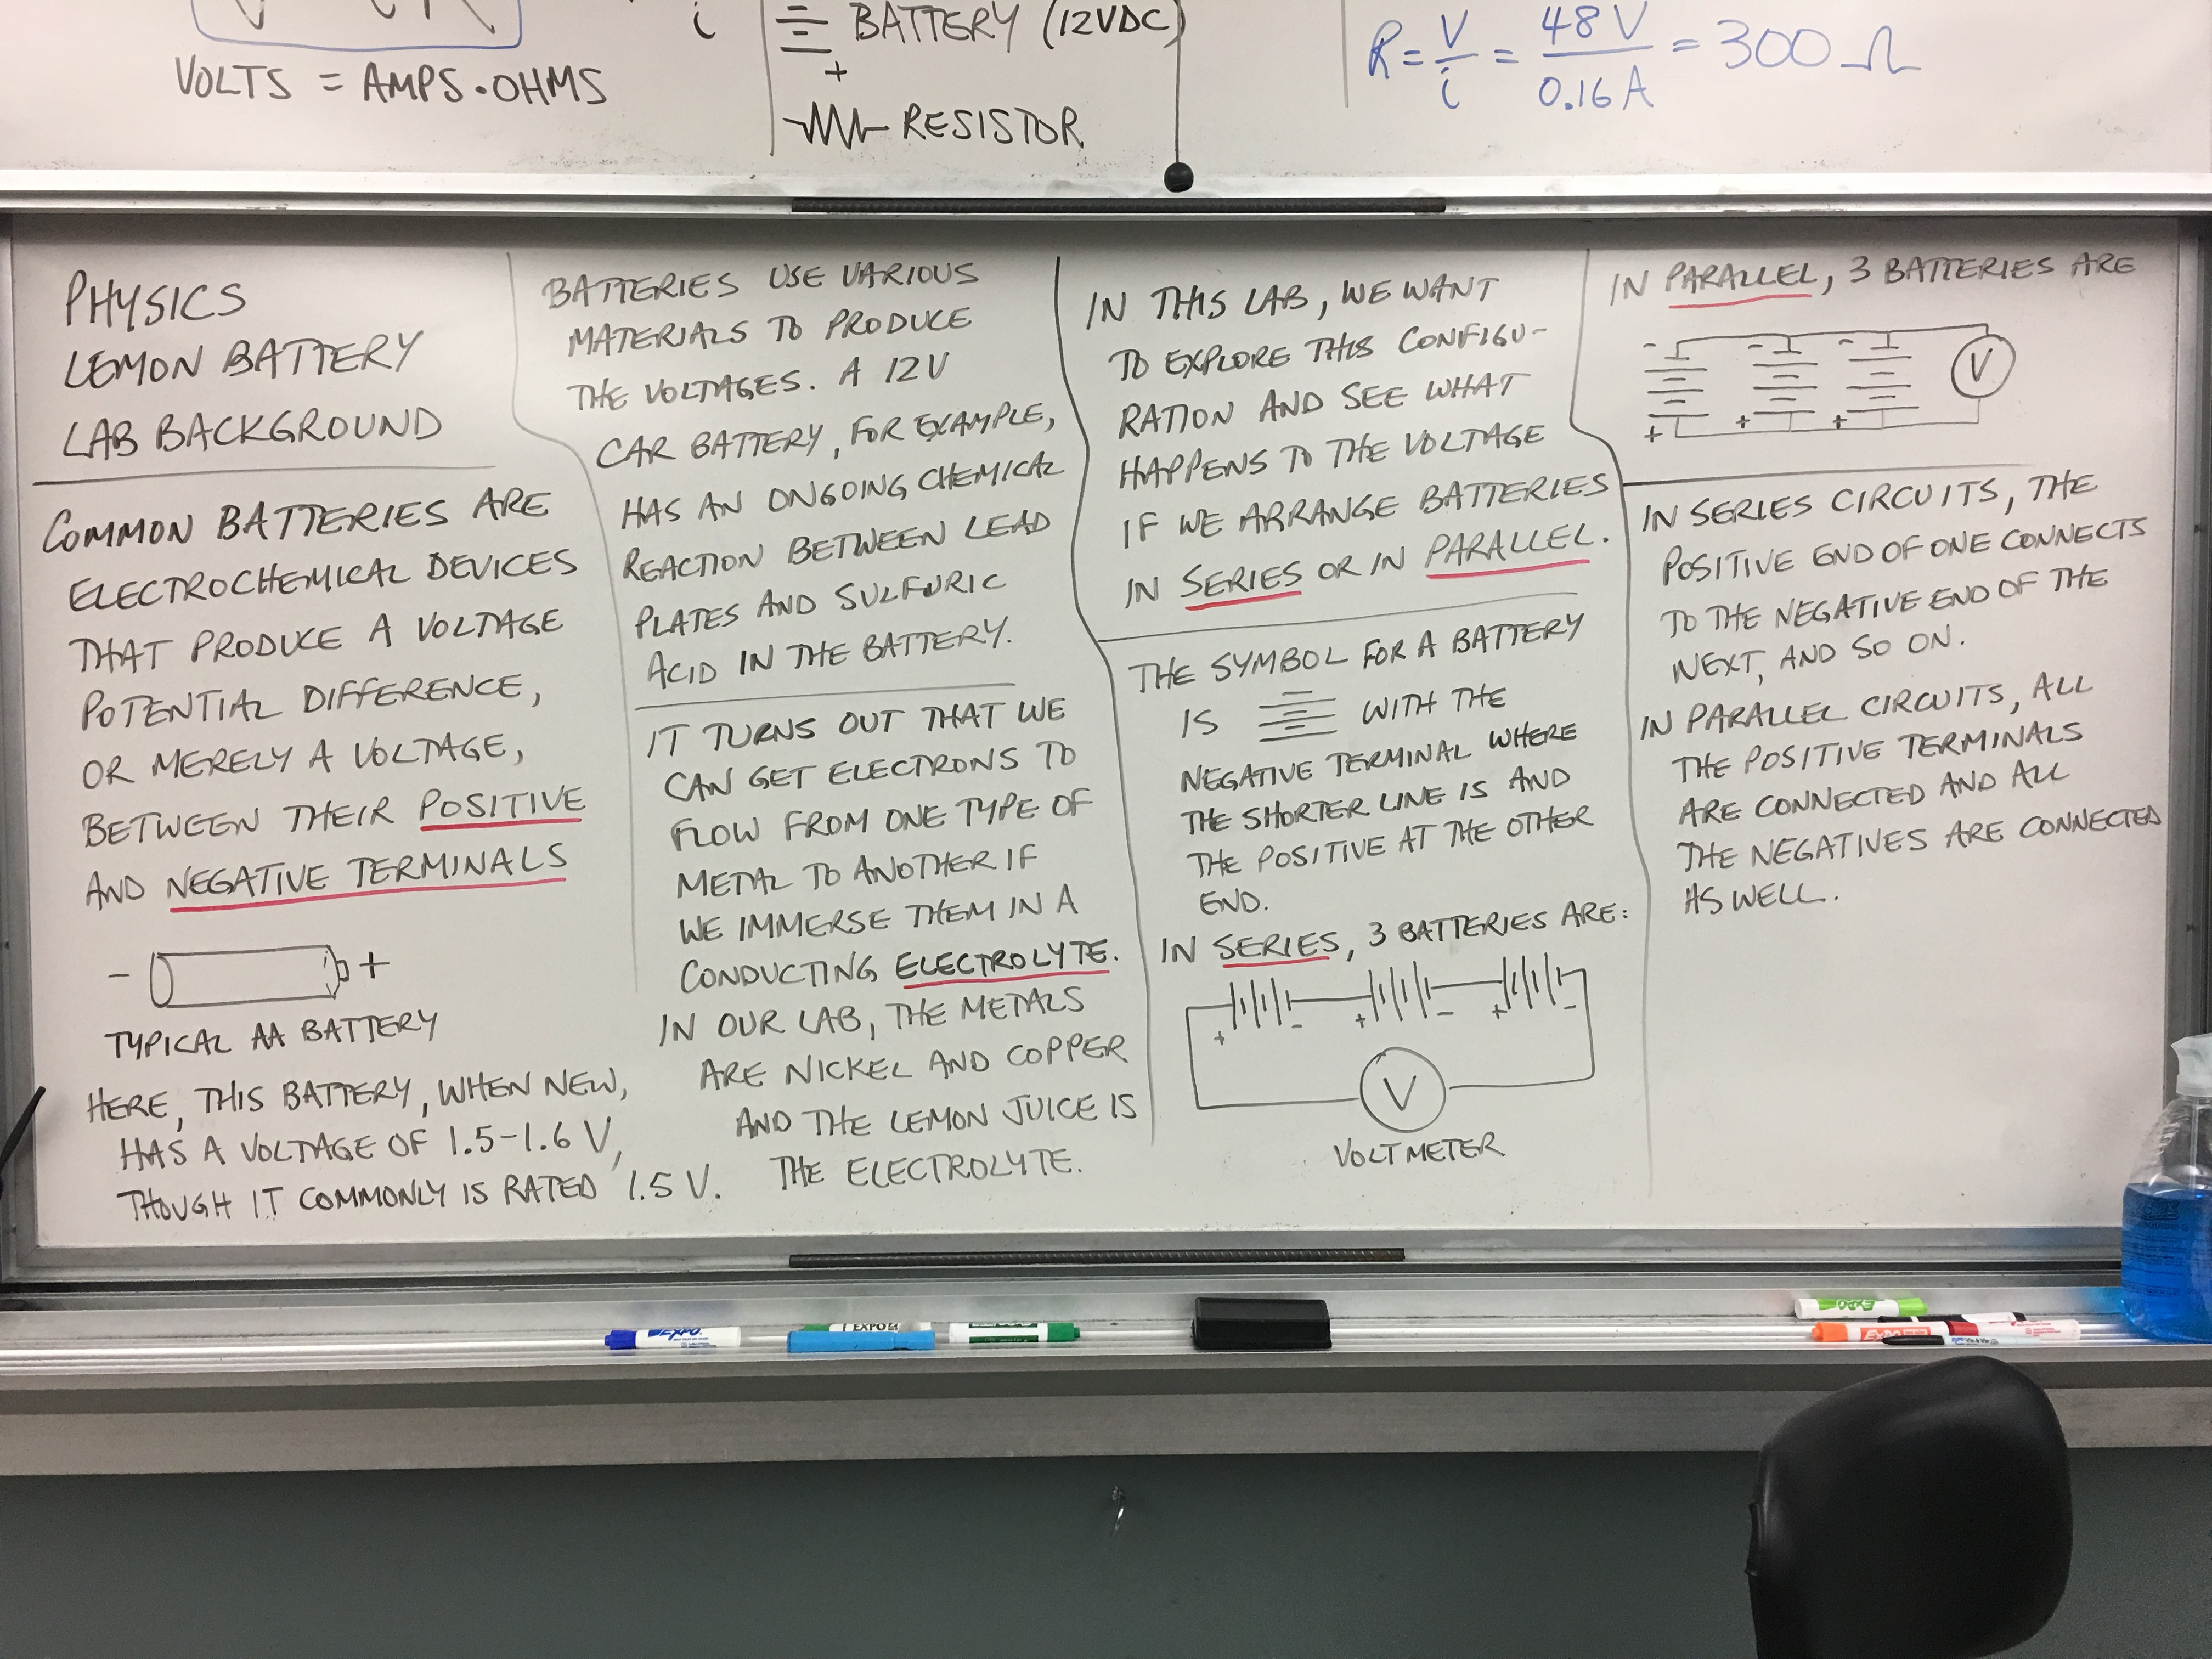 VOLTS = AMPS·OHMS
i
BATTERY (12VDC)
+
RESISTOR
R = V/i = 48 V/0.16 A = 300 Ω
PHYSICS
LEMON BATTERY
LAB BACKGROUND
COMMON BATTERIES ARE
ELECTROCHEMICAL DEVICES
THAT PRODUCE A VOLTAGE
POTENTIAL DIFFERENCE,
OR MERELY A VOLTAGE,
BETWEEN THEIR POSITIVE
AND NEGATIVE TERMINALS
- +
TYPICAL AA BATTERY
HERE, THIS BATTERY, WHEN NEW,
HAS A VOLTAGE OF 1.5-1.6 V,
THOUGH IT COMMONLY IS RATED 1.5 V.
BATTERIES USE VARIOUS
MATERIALS TO PRODUCE
THE VOLTAGES. A 12V
CAR BATTERY, FOR EXAMPLE,
HAS AN ONGOING CHEMICAL
REACTION BETWEEN LEAD
PLATES AND SULFURIC
ACID IN THE BATTERY.
IT TURNS OUT THAT WE
CAN GET ELECTRONS TO
FLOW FROM ONE TYPE OF
METAL TO ANOTHER IF
WE IMMERSE THEM IN A
CONDUCTING ELECTROLYTE.
IN OUR LAB, THE METALS
ARE NICKEL AND COPPER
AND THE LEMON JUICE IS
THE ELECTROLYTE.
IN THIS LAB, WE WANT
TO EXPLORE THIS CONFIGU-
RATION AND SEE WHAT
HAPPENS TO THE VOLTAGE
IF WE ARRANGE BATTERIES
IN SERIES OR IN PARALLEL.
THE SYMBOL FOR A BATTERY
IS WITH THE
NEGATIVE TERMINAL WHERE
THE SHORTER LINE IS AND
THE POSITIVE AT THE OTHER
END.
IN SERIES, 3 BATTERIES ARE:
+ - + - + -
V
VOLTMETER
IN PARALLEL, 3 BATTERIES ARE
- - -
V
+ + +
IN SERIES CIRCUITS, THE
POSITIVE END OF ONE CONNECTS
TO THE NEGATIVE END OF THE
NEXT, AND SO ON.
IN PARALLEL CIRCUITS, ALL
THE POSITIVE TERMINALS
ARE CONNECTED AND ALL
THE NEGATIVES ARE CONNECTED
AS WELL.
EXPO
EXPO
EXPO
EXPO